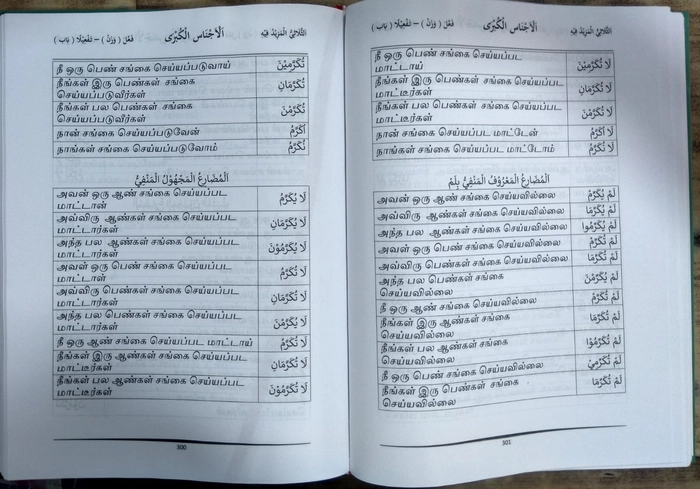 الثُّلَاثِيُّ الْمَزِيْدُ فِيْهِ
اَلْاَجْنَاسُ الْكُبْرٰى
فَعَّلَ ( وَزْنْ ) – تَفْعِيْلًا ( بَابْ )
நீ ஒரு பெண் சங்கை செய்யப்படுவாய் تُكَرَّمِيْنَ
நீங்கள் இரு பெண்கள் சங்கை
செய்யப்படுவீர்கள் تُكَرَّمَانِ
நீங்கள் பல பெண்கள் சங்கை
செய்யப்படுவீர்கள் تُكَرَّمْنَ
நான் சங்கை செய்யப்படுவேன் اُكَرَّمُ
நாங்கள் சங்கை செய்யப்படுவோம் نُكَرَّمُ
اَلْمُضَارِعُ الْمَجْهُوْلُ الْمَنْفِيُّ
அவன் ஒரு ஆண் சங்கை செய்யப்பட
மாட்டான் لَا يُكَرَّمُ
அவ்விரு ஆண்கள் சங்கை செய்யப்பட
மாட்டார்கள் لَا يُكَرَّمَانِ
அந்த பல ஆண்கள் சங்கை செய்யப்பட
மாட்டார்கள் لَا يُكَرَّمُوْنَ
அவள் ஒரு பெண் சங்கை செய்யப்பட
மாட்டாள் لَا تُكَرَّمُ
அவ்விரு பெண்கள் சங்கை செய்யப்பட
மாட்டார்கள் لَا تُكَرَّمَانِ
அந்த பல பெண்கள் சங்கை செய்யப்பட
மாட்டார்கள் لَا يُكَرَّمْنَ
நீ ஒரு ஆண் சங்கை செய்யப்பட மாட்டாய் لَا تُكَرَّمُ
நீங்கள் இரு ஆண்கள் சங்கை செய்யப்பட
மாட்டீர்கள் لَا تُكَرَّمَانِ
நீங்கள் பல ஆண்கள் சங்கை செய்யப்பட
மாட்டீர்கள் لَا تُكَرَّمُوْنَ
300
الثُّلَاثِيُّ الْمَزِيْدُ فِيْهِ
اَلْاَجْنَاسُ الْكُبْرٰى
فَعَّلَ ( وَزْنْ ) – تَفْعِيْلًا ( بَابْ )
நீ ஒரு பெண் சங்கை செய்யப்பட
மாட்டாய் لَا تُكَرَّمِيْنَ
நீங்கள் இரு பெண்கள் சங்கை செய்யப்பட
மாட்டீர்கள் لَا تُكَرَّمَانِ
நீங்கள் பல பெண்கள் சங்கை செய்யப்பட
மாட்டீர்கள் لَا تُكَرَّمْنَ
நான் சங்கை செய்யப்பட மாட்டேன் لَا اُكَرَّمُ
நாங்கள் சங்கை செய்யப்பட மாட்டோம் لَا نُكَرَّمُ
اَلْمُضَارِعُ الْمَعْرُوْفُ الْمَنْفِيُّ بِلَمْ
அவன் ஒரு ஆண் சங்கை செய்யவில்லை لَمْ يُكَرِّمْ
அவ்விரு ஆண்கள் சங்கை செய்யவில்லை لَمْ يُكَرِّمَا
அந்த பல ஆண்கள் சங்கை செய்யவில்லை لَمْ يُكَرِّمُوا
அவள் ஒரு பெண் சங்கை செய்யவில்லை لَمْ تُكَرِّمْ
அவ்விரு பெண்கள் சங்கை செய்யவில்லை لَمْ تُكَرِّمَا
அந்த பல பெண்கள் சங்கை
செய்யவில்லை لَمْ يُكَرِّمْنَ
நீ ஒரு ஆண் சங்கை செய்யவில்லை لَمْ تُكَرِّمْ
நீங்கள் இரு ஆண்கள் சங்கை
செய்யவில்லை لَمْ تُكَرِّمَا
நீங்கள் பல ஆண்கள் சங்கை
செய்யவில்லை لَمْ تُكَرِّمُوْا
நீ ஒரு பெண் சங்கை செய்யவில்லை لَمْ تُكَرِّمِيْ
நீங்கள் இரு பெண்கள் சங்கை
செய்யவில்லை لَمْ تُكَرِّمَا
301